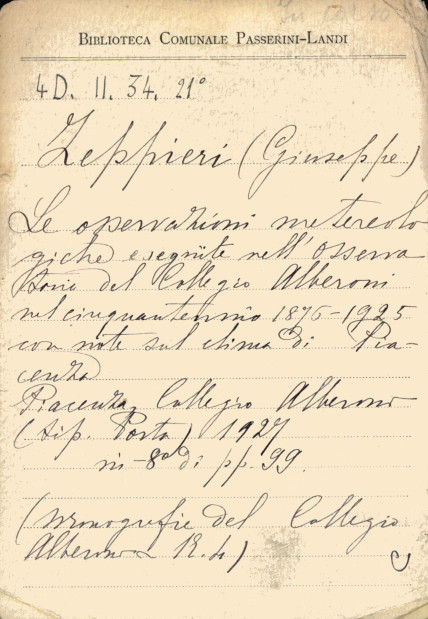 BIBLIOTECA COMUNALE PASSERINI-LANDI
4D. II. 34. 21°
Zeppieri (Giuseppe)
Le osservazioni metereolo
giche eseguite nell'Osserva
torio del Collegio Alberoni
nel cinquantennio 1876-1925
con note sul clima di Pia-
cenza
Piacenza, Collegio Alberoni
(Tip. Porta) 1927
in-8° di pp. 99.
(Monografie del Collegio
Alberoni